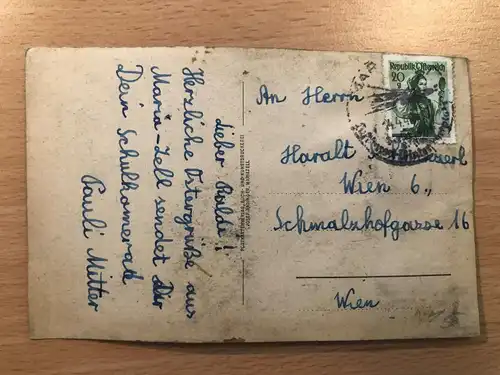 Lieber Raldi!
Herzliche Ostergrüße aus
Maria-Zell sendet Dir
Dein Schulkamerad
Pauli Mitter
Republik Österreich
20
An Herrn
Haralt
Wien 6.,
Schmalzhofgasse 16
Wien